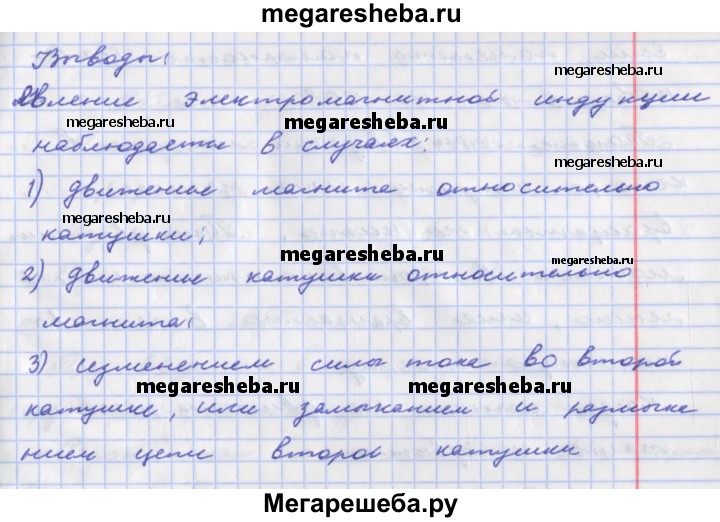 megaresheba.ru
Выводы:
megaresheba.ru
Явление электромагнитной индукции
megaresheba.ru megaresheba.ru
наблюдается в случаях:
megaresheba.ru
1) движение магнита относительно
megaresheba.ru
катушки;
megaresheba.ru megaresheba.ru
2) движение катушки относительно
магнита:
3) изменением силы тока во второй
megaresheba.ru megaresheba.ru
катушке, или замыканием и размыка
нием цепи второй катушки
Мегарешеба.ру